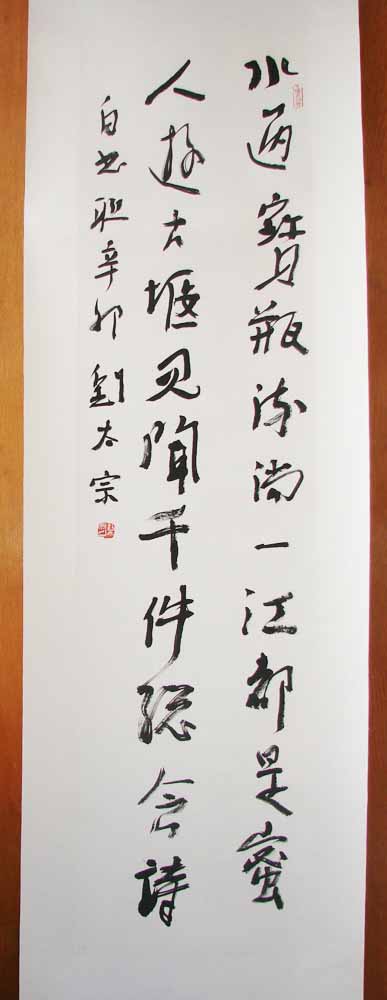 水過寶瓶流淌一江都是蜜
人遊古堰見聞千件總含詩
自书聯辛卯劉太宗